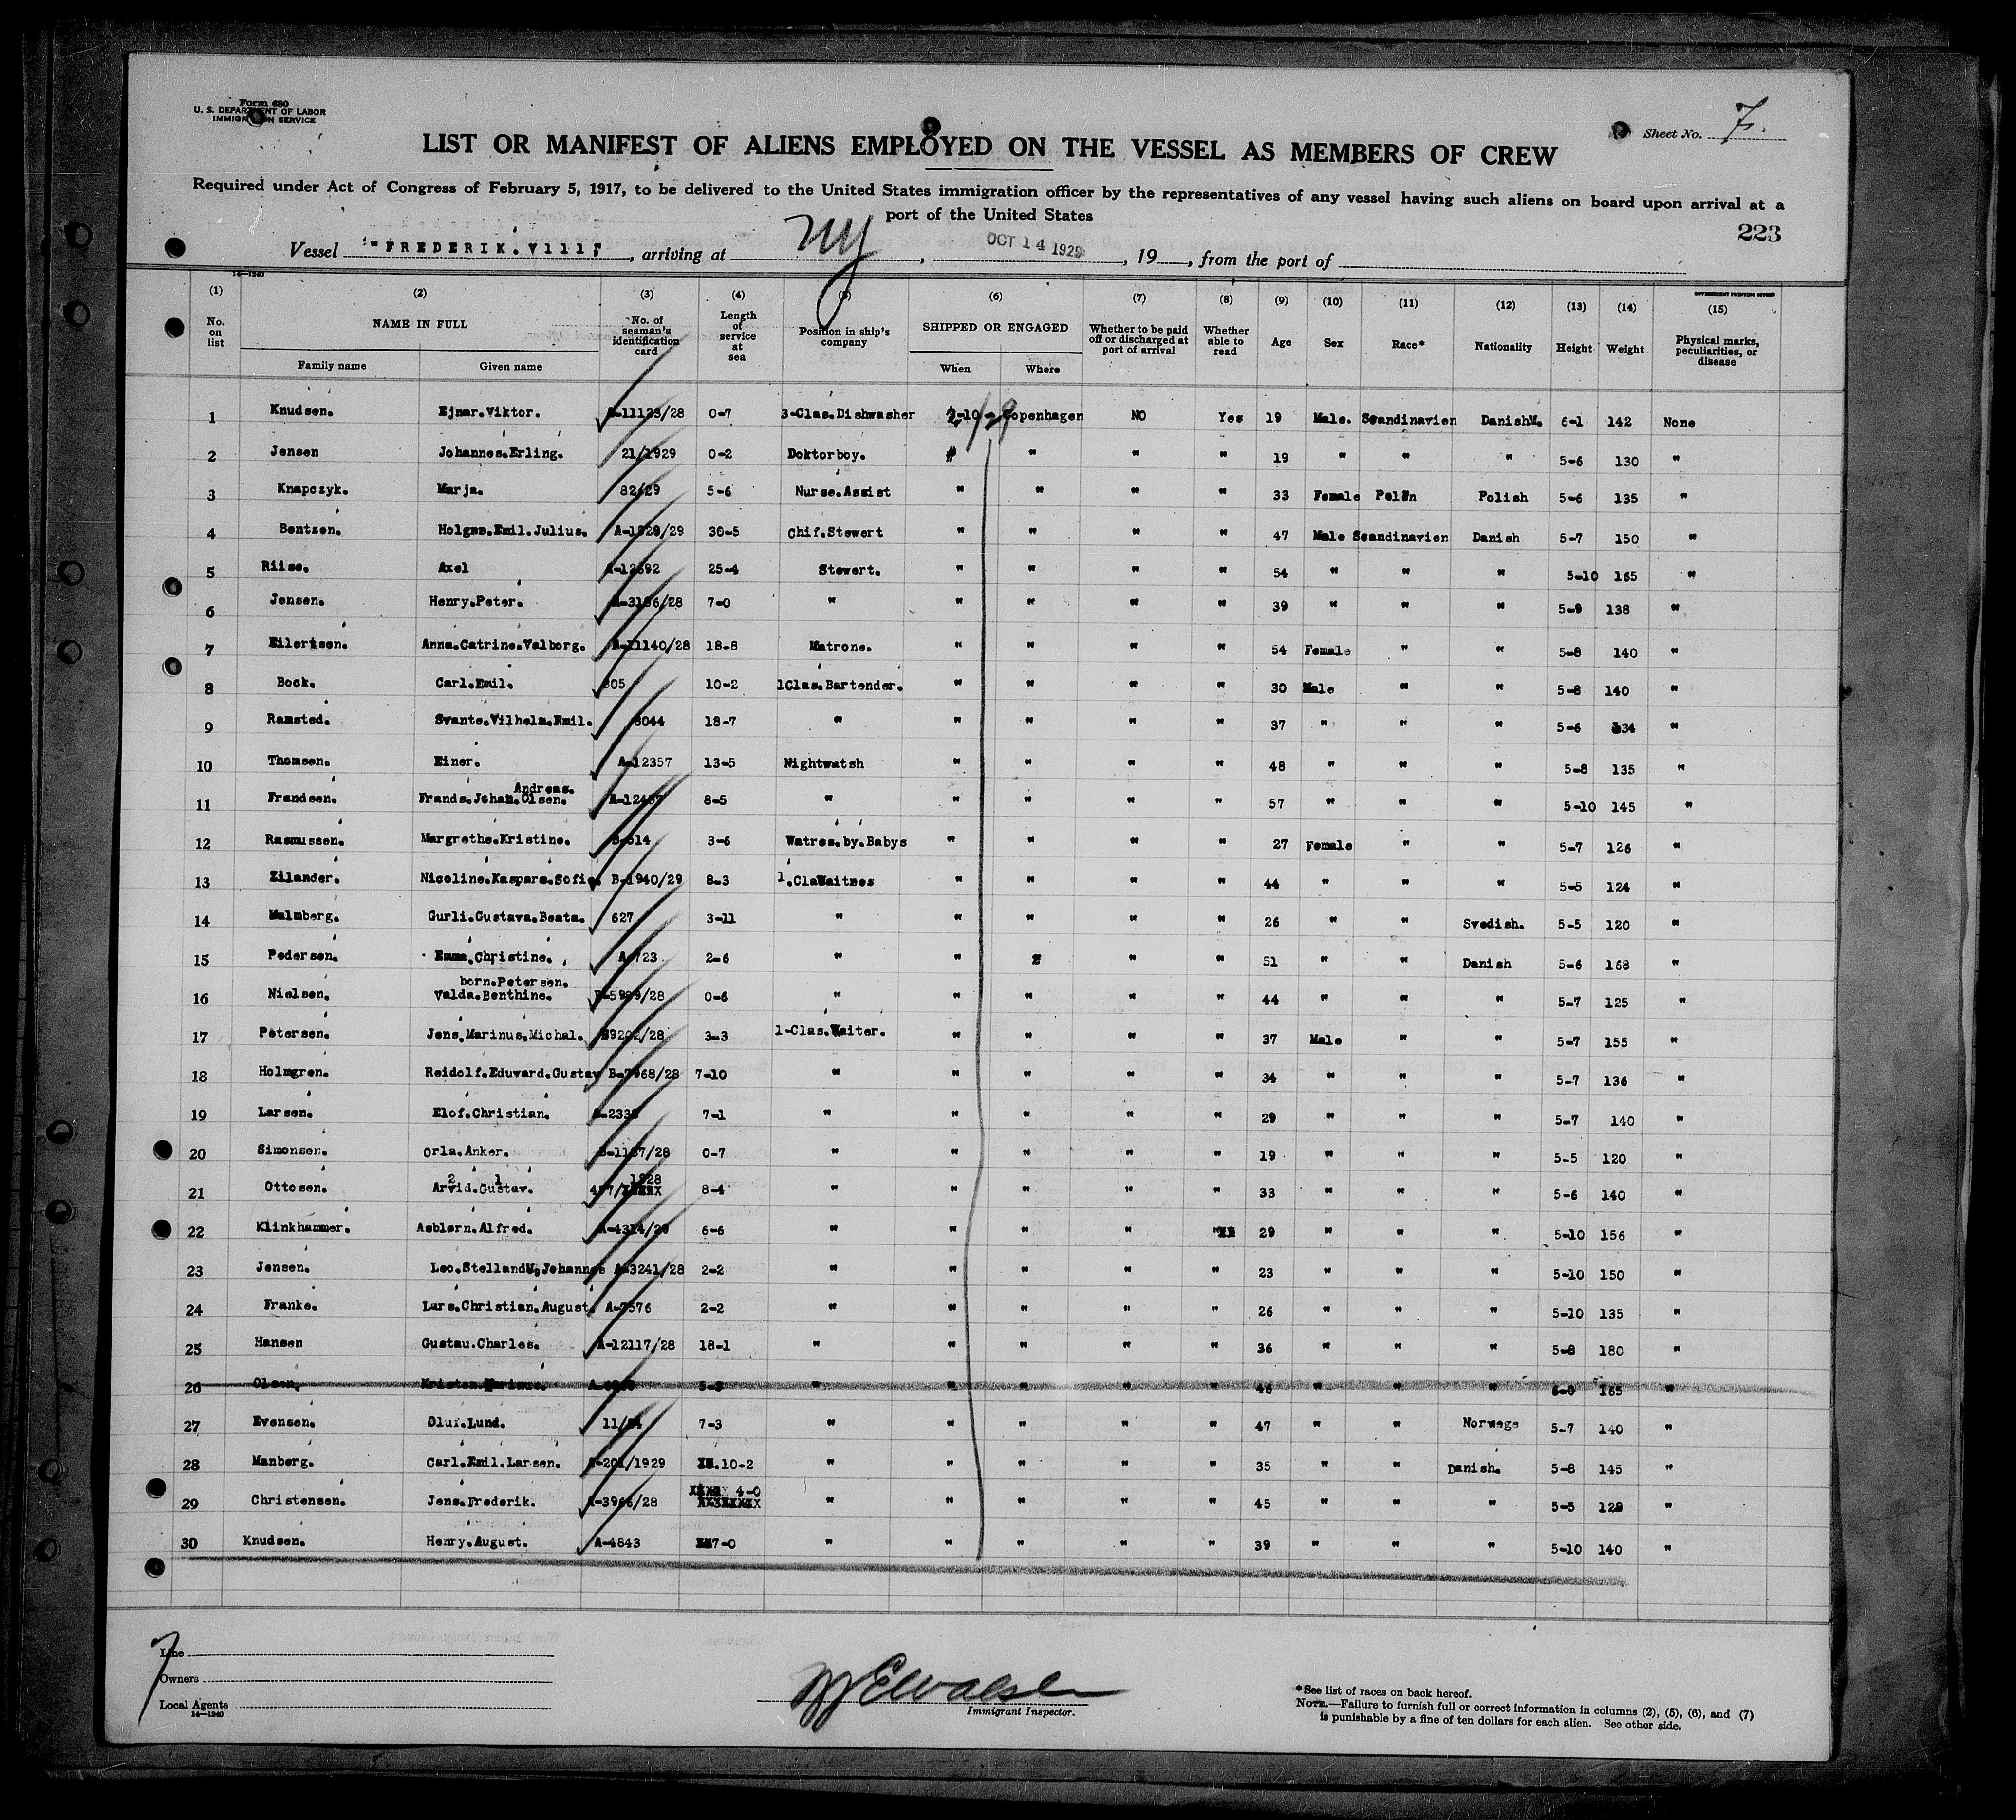 Form 680
U. S. DEPARTMENT OF LABOR
IMMIGRATION SERVICE
Sheet No. 7.
LIST OR MANIFEST OF ALIENS EMPLOYED ON THE VESSEL AS MEMBERS OF CREW
Required under Act of Congress of February 5, 1917, to be delivered to the United States immigration officer by the representatives of any vessel having such aliens on board upon arrival at a
port of the United States
223
Vessel "FREDERIK.V111", arriving at NY, OCT 14 1929, 19, from the port of
14—1240
GOVERNMENT PRINTING OFFICE
(1) (2) (3) (4) (5) (6) (7) (8) (9) (10) (11) (12) (13) (14) (15)
No. on list NAME IN FULL Family name Given name No. of seaman's identification card Length of service at sea Position in ship's company SHIPPED OR ENGAGED When Where Whether to be paid off or discharged at port of arrival Whether able to read Age Sex Race* Nationality Height Weight Physical marks, peculiarities, or disease
1 Knudsen. Ejnar.Viktor. 11123/28 0-7 3-Clas.Dishwasher 2-10-29 Copenhagen NO Yes 19 Male. Scandinavien Danish. 6-1 142 None
2 Jensen Johannes.Erling. 21/1929 0-2 Doktorboy. " " " " 19 " " " 5-6 130 "
3 Knapczyk. Marja. 82/29 5-6 Nurse.Assist " " " " 33 Female Polen Polish 5-6 135 "
4 Bentzen. Holger.Emil.Julius. A-1829/29 30-5 Chif.Stewert " " " " 47 Male Scandinavien Danish 5-7 150 "
5 Riise. Axel A-12692 25-4 Stewert. " " " " 54 " " " 5-10 165 "
6 Jensen. Henry.Peter. A-3186/28 7-0 " " " " " 39 " " " 5-9 138 "
7 Eilertsen. Anna.Catrine.Valborg. A-11140/28 18-8 Matrone. " " " " 54 Female " " 5-8 140 "
8 Bock. Carl.Emil. 805 10-2 1Clas.Bartender. " " " " 30 Male " " 5-8 140 "
9 Ramsted. Svante.Vilhelm.Emil. 8044 18-7 " " " " " 37 " " " 5-6 134 "
10 Thomsen. Einer. A-12357 13-5 Nightwatsh " " " " 48 " " " 5-8 135 "
Andreas.
11 Frandsen. Frands.Johan.Olsen. A-12457 8-5 " " " " " 57 " " " 5-10 145 "
12 Rasmussen. Margrethe.Kristine. B-514 3-6 Watres.by.Babys " " " " 27 Female " " 5-7 126 "
13 Zilander. Nicoline.Kaspara.Sofie. B-1940/29 8-3 1.ClaWaitres " " " " 44 " " " 5-5 124 "
14 Malmberg. Gurli.Gustava.Beata. 627 3-11 " " " " " 26 " " Svedish. 5-5 120 "
15 Pedersen. Emma.Christine. A-723 2-6 " " " " " 51 " " Danish 5-6 168 "
born.Petersen.
16 Nielsen. Valda.Benthine. /28 0-6 " " " " " 44 " " " 5-7 125 "
17 Petersen. Jens.Marinus.Michal. /28 3-3 1-Clas.Waiter. " " " " 37 Male " " 5-7 155 "
18 Holmgren. Reidolf.Eduvard.Gustav B-7968/28 7-10 " " " " " 34 " " " 5-7 136 "
19 Larsen. Elof.Christian. 7-1 " " " " " 29 " " " 5-7 140 "
20 Simonsen. Orla.Anker. /28 0-7 " " " " " 19 " " " 5-5 120 "
2 1 1928
21 Ottosen. Arvid.Gustav. 8-4 " " " " " 33 " " " 5-6 140 "
22 Klinkhammer. Asbjørn.Alfred. A-4314/29 6-6 " " " " " 29 " " " 5-10 156 "
23 Jensen. Leo.Stelland.Johannes A-3241/28 2-2 " " " " " 23 " " " 5-10 150 "
24 Franke. Lars.Christian.August. A-7576 2-2 " " " " " 26 " " " 5-10 135 "
25 Hansen Gustau.Charles. A-12117/28 18-1 " " " " " 36 " " " 5-8 180 "
26 Olsen. Kristen.Marinus. 5-3 " " " " " 46 " " " 6-0 165 "
27 Evensen. Oluf.Lund. 7-3 " " " " " 47 " " Norwege 5-7 140 "
28 Manberg. Carl.Emil.Larsen. A-201/1929 10-2 " " " " " 35 " " Danish. 5-8 145 "
29 Christensen. Jens.Frederik. A-3966/28 4-0 " " " " " 45 " " " 5-5 129 "
30 Knudsen. Henry.August. A-4843 7-0 " " " " " 39 " " " 5-10 140 "
7
Line
Owners
Local Agents
14—1240
Immigrant Inspector.
*See list of races on back hereof.
NOTE.—Failure to furnish full or correct information in columns (2), (5), (6), and (7)
is punishable by a fine of ten dollars for each alien. See other side.